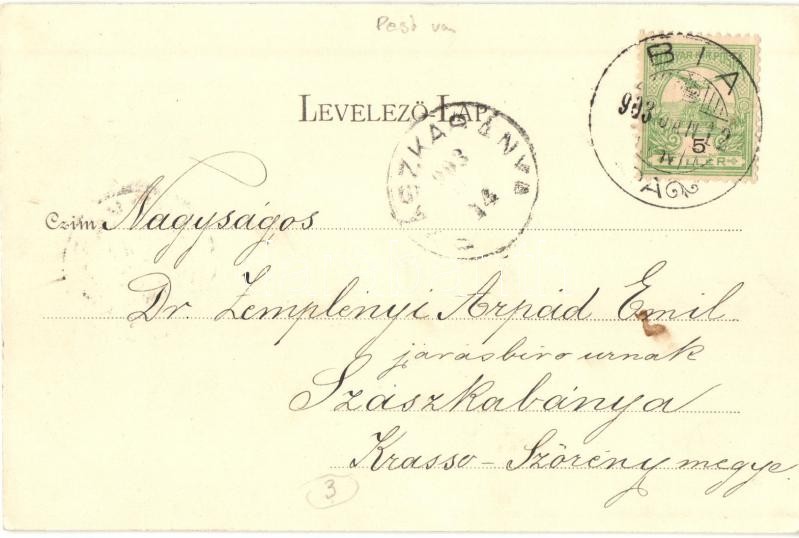 Pest vm
LEVELEZŐ-LAP.
BIA
903
5
SZKABÁNYA
903
14
Czim Nagyságos
Dr. Zemplényi Arpád Emil
járásbiro urnak
Szászkabánya
Krasso-Szörény megye
3